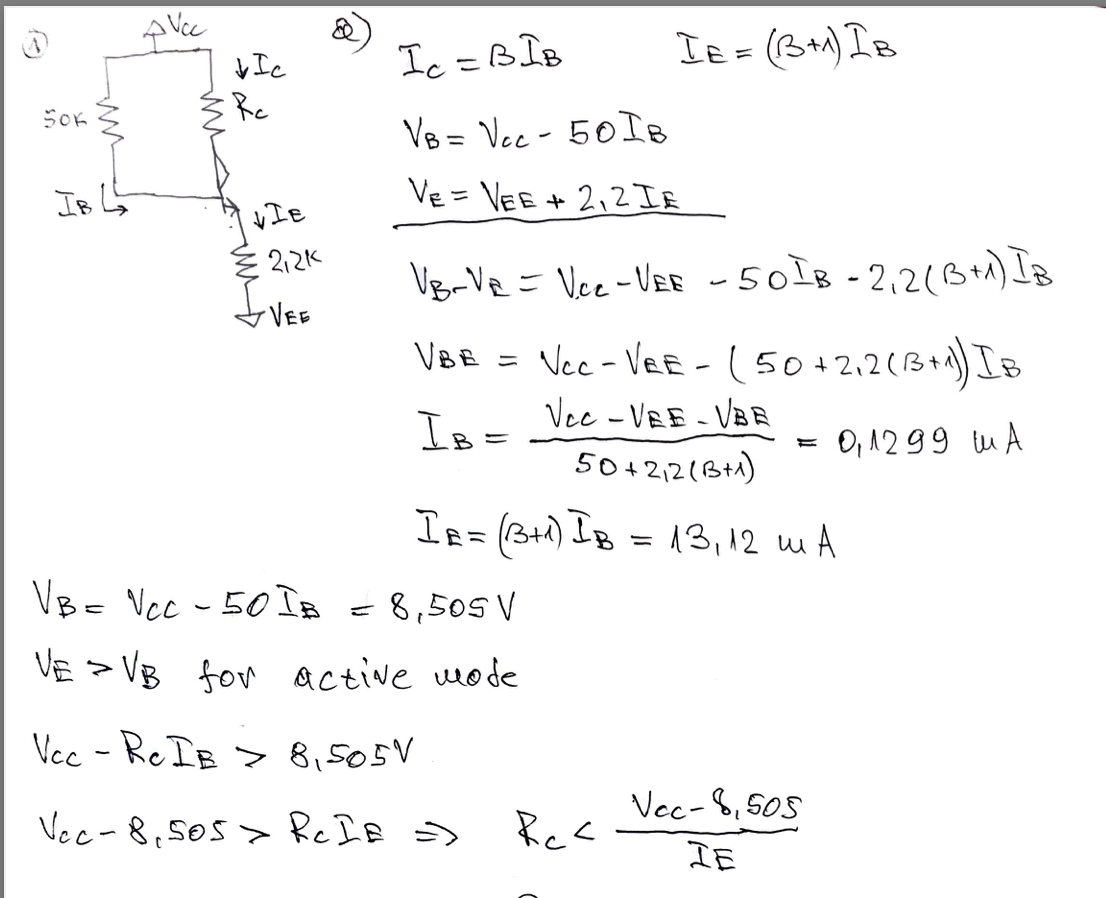 1
Vcc
↓Ic
Rc
50K
IB
↓IE
2,2K
VEE
a)
Ic = βIB    IE = (β+1)IB
VB = Vcc - 50IB
VE = VEE + 2,2IE
VB-VE = Vcc-VEE - 50IB - 2,2(β+1)IB
VBE = Vcc - VEE - (50+2,2(β+1))IB
IB = (Vcc - VEE - VBE) / (50+2,2(β+1)) = 0,1299 mA
IE = (β+1)IB = 13,12 mA
VB = Vcc - 50IB = 8,505V
VE > VB for active mode
Vcc - RcIE > 8,505V
Vcc - 8,505 > RcIE => Rc < (Vcc-8,505) / IE